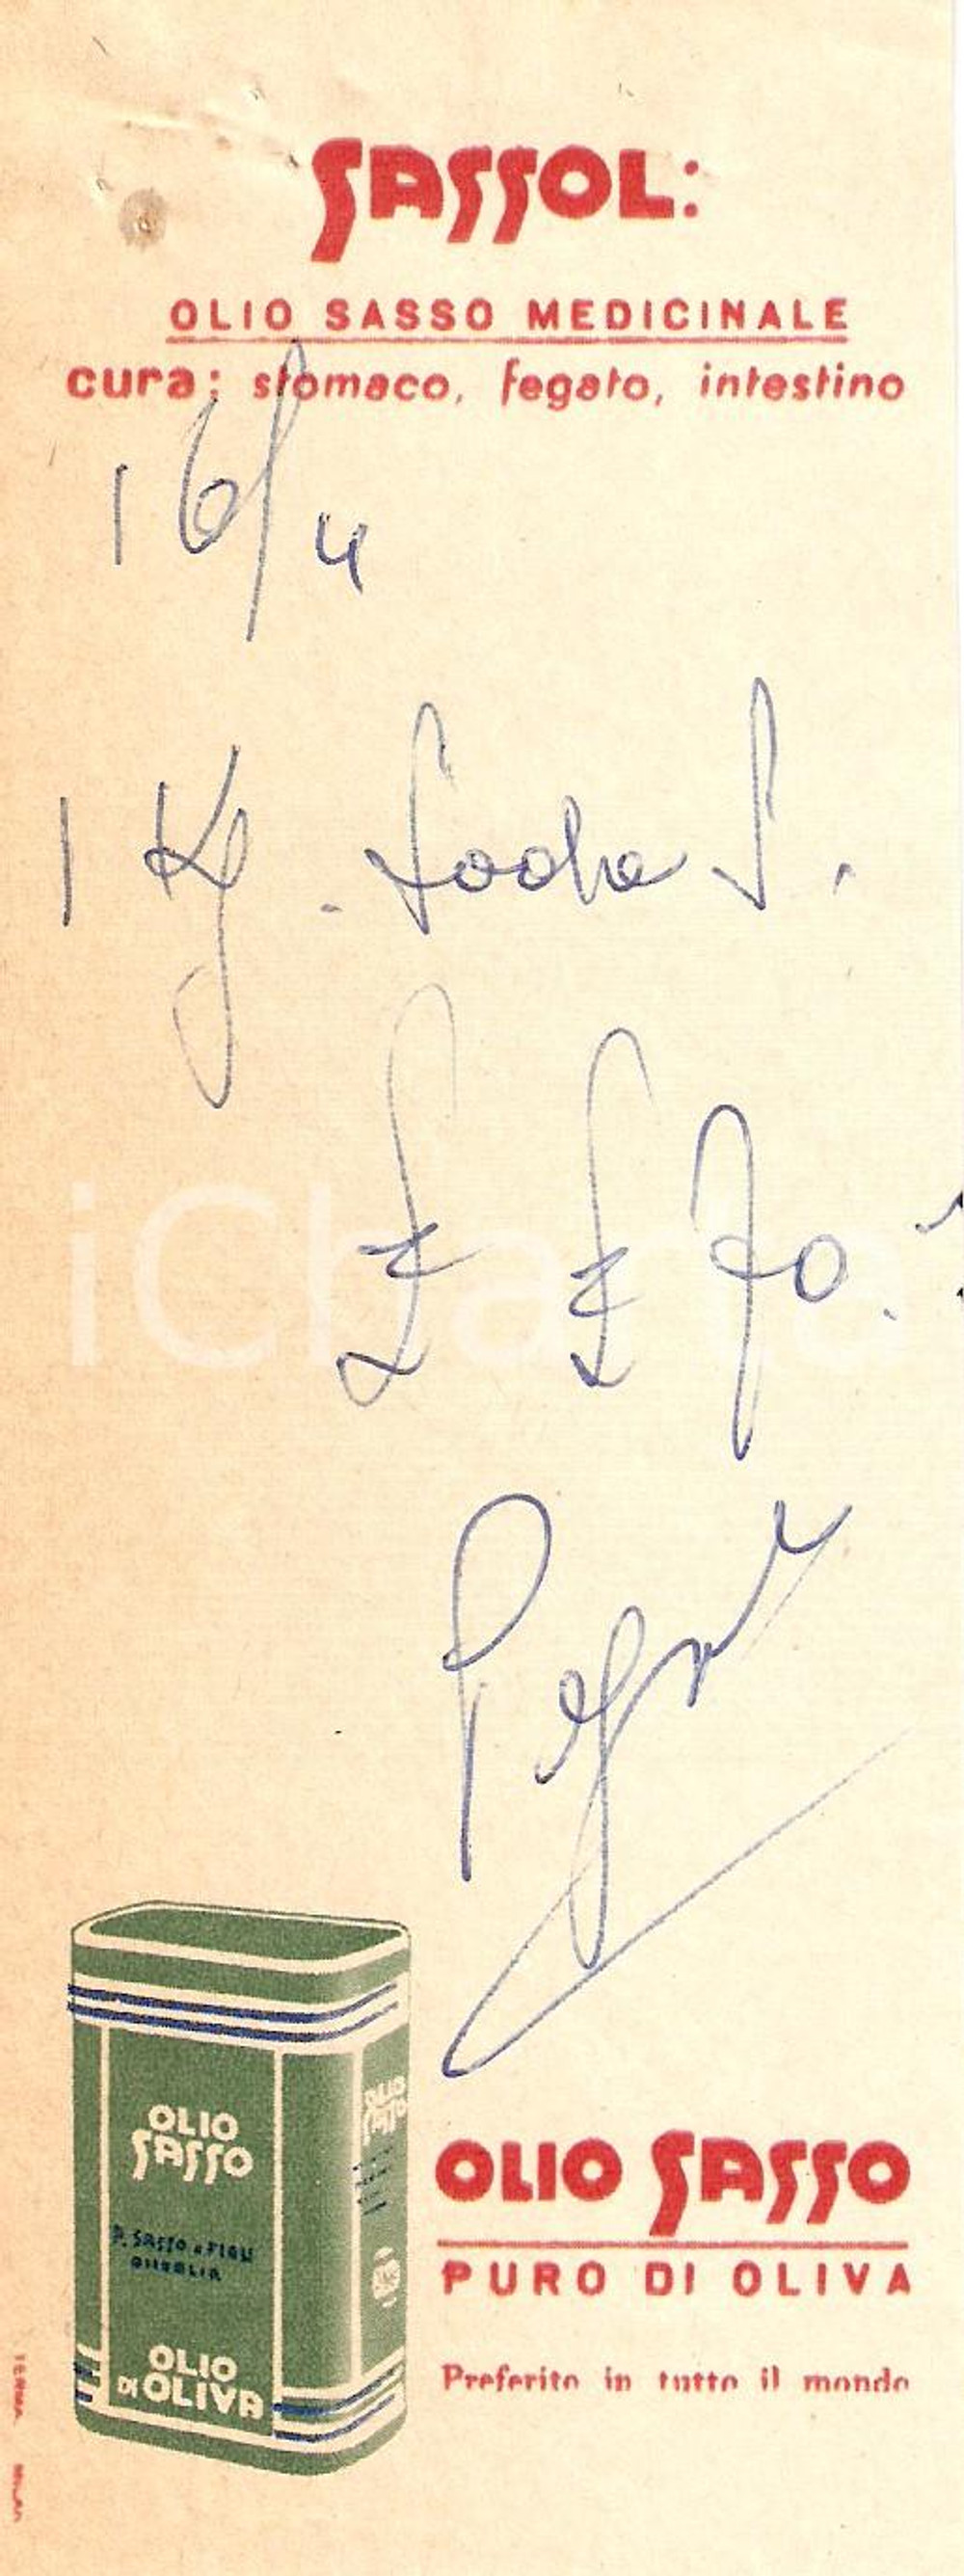 SASSOL:
OLIO SASSO MEDICINALE
cura: stomaco, fegato, intestino
16/4
1 Kg. Soda S.
£ £ 70.
OLIO
SASSO
OLIO
SASSO
P. SASSO e FIGLI
ONEGLIA
OLIO
DI OLIVA
OLIO SASSO
PURO DI OLIVA
Preferito in tutto il mondo